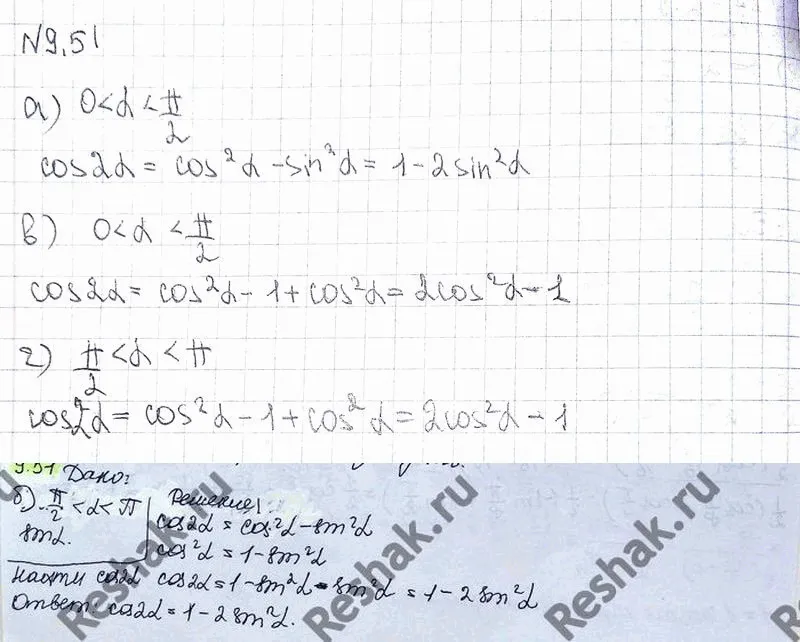 №9.51
а) 0<α<π/2
cos2α = cos²α - sin²α = 1 - 2sin²α
в) 0<α<π/2
cos2α = cos²α - 1 + cos²α = 2cos²α - 1
г) π/2<α<π
cos2α = cos²α - 1 + cos²α = 2cos²α - 1
9.51 Дано:
б) π/2<α<π
sinα.
Решение:
cos2α = cos²α - sin²α
cos²α = 1 - sin²α
Найти cos2α
cos2α = 1 - sin²α - sin²α = 1 - 2sin²α
Ответ: cos2α = 1 - 2sin²α.
Reshak.ru
Reshak.ru
Reshak.ru
Reshak.ru